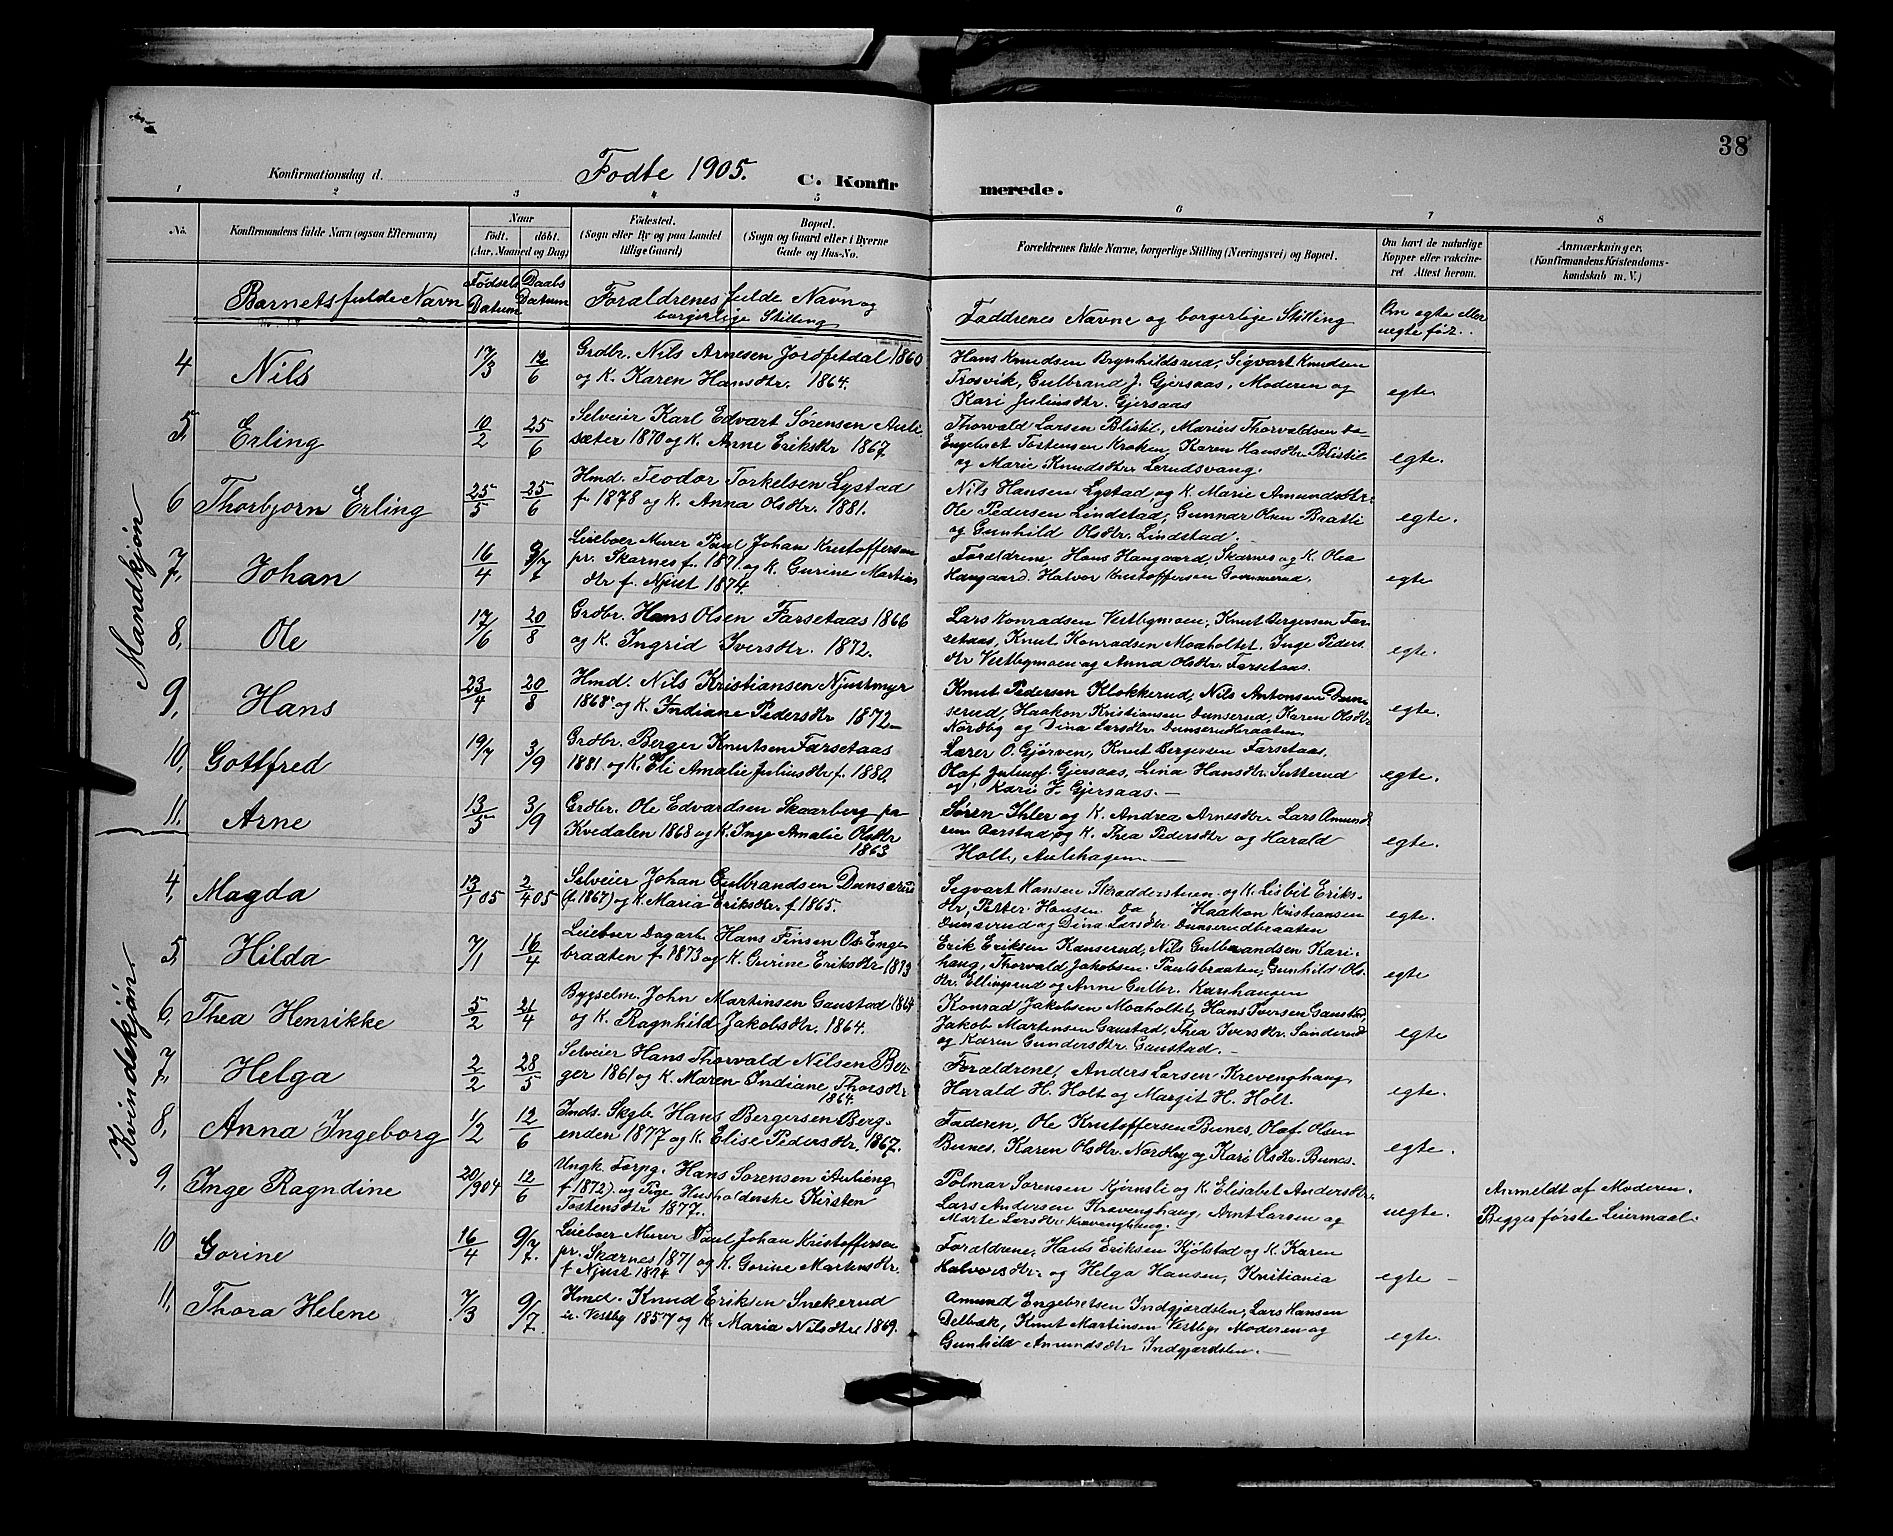 38
Konfirmationsdag d. Fødte 1905. C. Konfirmerede.
1 2 3 4 5 6 7 8
No. Konfirmandens fulde Navn (ogsaa Efternavn) Naar født. døbt. (Aar, Maaned og Dag) Fødested. (Sogn eller By og paa Landet tillige Gaard) Bopæl. (Sogn og Gaard eller i Byerne Gade og Hus-No. Forældrenes fulde Navne, borgerlige Stilling (Næringsvei) og Bopæl. Om havt de naturlige Kopper eller vakcineret Attest herom. Anmærkninger. (Konfirmandens Kristendomskundskab m. V.)
Barnets fulde Navn Fødsels Datum Daabs Datum Forældrenes fulde Navn og borgerlige Stilling Faddrenes Navne og borgerlige Stilling Om egte eller uegte fød.
Mandkjøn
4 Nils 17/3 12/6 Grdbr. Nils Arnesen Jordfetdal 1860
og K. Karen Hansdtr. 1864.
Hans Knudsen Brynhildsrud, Sigvart Knudsen
Trosvik, Gulbrand J. Gjersaas, Moderen og
Kari Juliusdtr. Gjersaas
egte.
5, Erling 10/2 25/6 Selveier Karl Edvart Sørensen Aule-
sæter 1870 og K. Anne Eriksdtr 1867
Thorvald Larsen Blistil, Marius Thorvaldsen do-
Engebret Tostensen Kroken, Karen Hansdtr Blistil
og Marie Knudsdtr Lerudsvang.
egte.
6 Thorbjorn Erling 25/5 25/6 Hmd. Teodor Torkelsen Lystad
f. 1878 og K. Anna Olsdtr. 1881.
Nils Hansen Lystad og K. Marie Amundsdtr.
Ole Pedersen Lindstad, Gunnar Olsen Bratli
og Gunhild Olsdtr. Lindstad.
egte.
7, Johan 16/4 9/7 Leieboer Murer Paul Johan Kristoffersen
pr. Skarnes f. 1871 og K. Gurine Martins
dtr f. Njust 1874.
Forældrene, Hans Haugaard, Skarnes og K. Olea
Haugaard. Halvor Kristoffersen Gommerud.
egte
8, Ole 17/6 20/8 Grdbr. Hans Olsen Farsetaas 1866
og K. Ingrid Iversdtr. 1872.
Lars Konradsen Vestbymoen, Knut Bergersen Far-
setaas, Knut Konradsen Moaholtet, Inge Peders
dtr Vestbymoen og Anna Olsdtr. Farsetaas.
egte.
9, Hans 23/4 20/8 Hmd. Nils Kristiansen Njustmyr
1868 og K. Indiane Pedersdtr 1872
Knut Pedersen Klokkerud, Nils Antonsen Dun-
serud, Haakon Kristiansen Dunserud, Karen Olsdtr
Nordby og Dina Larsdtr. Dunserudbraaten
egte.
10, Gottfred 19/7 3/9 Grdbr. Berger Knutsen Farsetaas
1881 og K. Eli Amalie Juliusdtr f. 1880.
Lærer O. Gjørven, Knut Bergersen Farsetaas,
Olaf Juliusf. Gjersaas, Lina Hansdtr. Sutterud
og Kari J. Gjersaas.
egte.
11, Arne 13/5 3/9 Grdbr. Ole Edvardsen Skaarberg pa
Kvedalen 1868 og K. Inge Amalie Olsdtr
1863
Søren Ihler og K. Andrea Arnesdtr. Lars Amund
sen Aarstad og K. Thea Pedersdtr og Harald
Holt, Aulehagen
egte.
Kvindekjøn
4, Magda 13/1 05 2/4 05 Selveier Johan Gulbrandsen Dunserud
(f. 1867) og K. Maria Eriksdtr. f. 1865.
Sigvart Hansen Skræddерstuen og K. Lisbet Eriks-
dtr, Petter Hansen do, Haakon Kristiansen
Dunserud og Dina Larsdtr Dunserudbraaten
egte.
5, Hilda 7/1 16/4 Leieboer Dagarb. Hans Finsen Os Enge
braaten f. 1873 og K. Gurine Eriksdtr 1873
Erik Eriksen Kanserud, Nils Gulbrandsen Kari-
haug, Thorvald Jakobsen Paulsbraaten, Gunhild Ols-
dtr. Ellingsrud og Anne Gulbr. Karihaugen
egte
6, Thea Henrikke 5/2 21/4 Bygselm. John Martinsen Gaustad 1864
og K. Ragnhild Jakobsdtr. 1864.
Konrad Jakobsen Moaholtet, Hans Iversen Gaustad,
Jakob Martinsen Gaustad, Thea Iversdtr. Sanderud
og Karen Gundersdtr. Gaustad.
egte
7, Helga 2/2 28/5 Selveier Hans Thorvald Nilsen Ber-
ger 1861 og K. Maren Indiane Thorsdtr
1864.
Forældrene, Anders Larsen Krevenghaug
Harald H. Holt og Margit H. Holt.
egte.
8, Anna Ingeborg 1/2 12/6 Inds. Skgb. Hans Bergersen Berg-
enden 1877 og K. Elise Pedersdtr. 1867.
Faderen, Ole Kristoffersen Bunes, Olaf Olsen
Bunes, Karen Olsdtr. Nordby og Kari Olsdtr. Bunes.
egte.
9, Inge Ragndine 20/1904 12/6 Ungk. Forpg. Hans Sorensen Aulieng
f. 1872) og Pige Husholderske Kirsten
Tostensdtr 1877.
Polmar Sorensen Kjernsli og K. Elisabet Andersdtr.
Lars Andersen Krevenghaug, Arnt Larsen og
Marte Larsdtr Krevenghaug.
uegte.
Anmeldt af Moderen.
Begges første Leiermaal.
10 Gorine 16/4 9/7. Leieboer Murer Paul Johan Kristoffersen
pr. Skarnes 1871 og K. Gorine Martinsdtr.
f. Njust 1874
Forældrene, Hans Eriksen Kjølstad og K. Karen
Halvorsdtr. og Helga Hansen, Kristiania
egte
11, Thora Helene 7/3 9/7. Hmd. Knud Eriksen Snekerud
u. Vestby 1857 og K. Maria Nilsdtr 1869.
Amund Engebretsen Indgjærdslen, Lars Hansen
Delbæk, Knut Martinsen Vestby, Moderen og
Gunhild Amundsdtr Indgjærdslen.
egte.